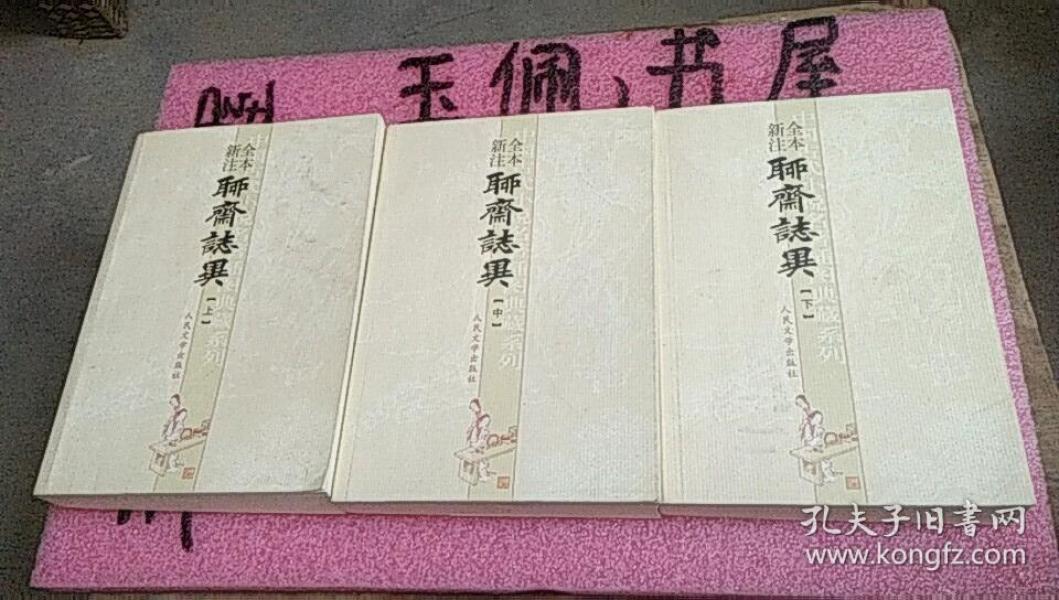 玉佩书屋
全本
新注
聊齋誌異
【上】
人民文学出版社
全本
新注
聊齋誌異
【中】
人民文学出版社
典藏系列
全本
新注
聊齋誌異
【下】
人民文学出版社
典藏系列
孔夫子旧書网
www.kongfz.com